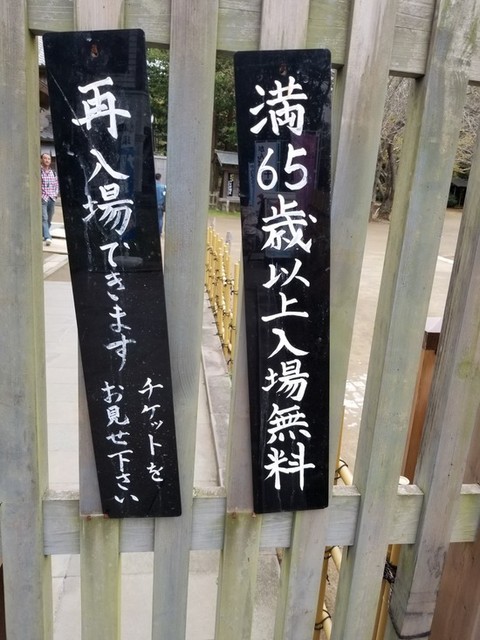 満65歳以上入場無料
再入場できます
チケットを
お見せ下さい